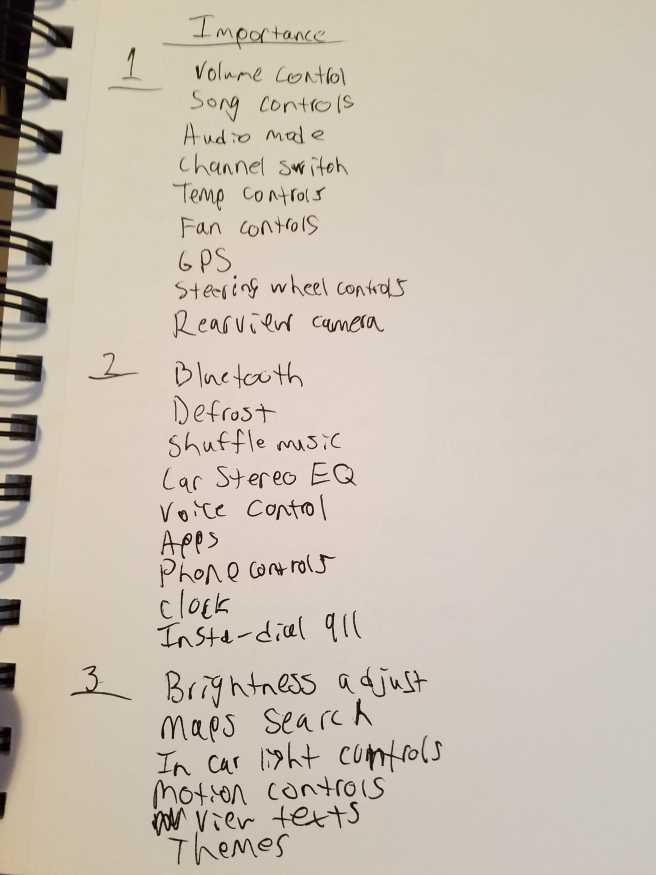 Importance
1 Volume control
Song controls
Audio mode
Channel switch
Temp controls
Fan controls
GPS
Steering wheel controls
Rearview camera
2 Bluetooth
Defrost
Shuffle music
Car Stereo EQ
Voice Control
Apps
Phone controls
Clock
Insta-dial 911
3 Brightness adjust
Maps Search
In car light controls
Motion controls
View texts
Themes